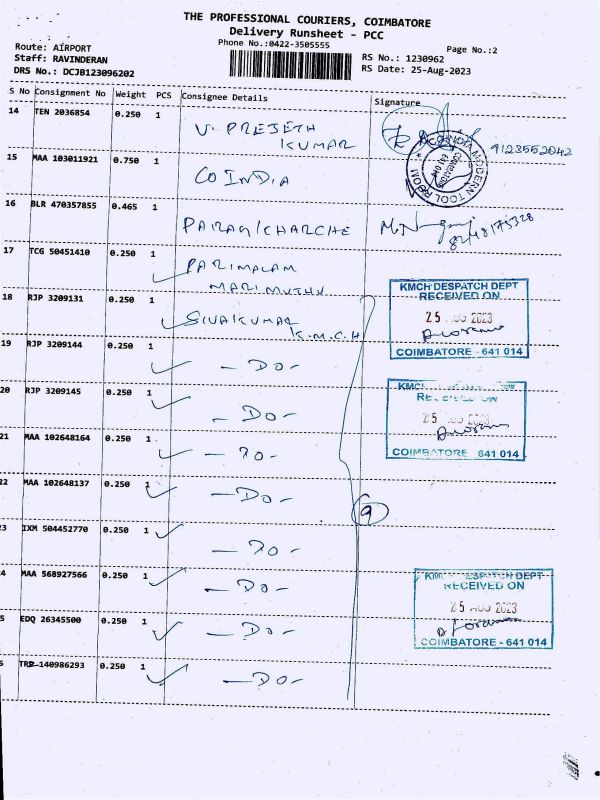 THE PROFESSIONAL COURIERS, COIMBATORE
Delivery Runsheet - PCC
Phone No.:0422-3505555
Page No.:2
Route: AIRPORT
Staff: RAVINDERAN
DRS No.: DCJB123096202
RS No.: 1230962
RS Date: 25-Aug-2023
S No Consignment No Weight PCS Consignee Details Signature
14 TEN 2036854 0.250 1
V. PREJETH
KUMAR
9123552042
15 MAA 103011921 0.750 1
CO INDIA
CO INDIA MODERN TOOL ROOM
16 BLR 470357855 0.465 1
PARAG/CHARCHE
17 TCG 50451410 0.250 1
PARIMALAM
MARIMUTHU
KMCH DESPATCH DEPT
RECEIVED ON
25 AUG 2023
COIMBATORE - 641 014
18 RJP 3209131 0.250 1
SIVAKUMAR
K.M.C.H
19 RJP 3209144 0.250 1
- DO -
20 RJP 3209145 0.250 1
- DO -
25 AUG 2023
COIMBATORE 641 014
21 MAA 102648164 0.250 1
- DO -
22 MAA 102648137 0.250 1
- DO -
9
3 IXM 504452770 0.250 1
- DO -
4 MAA 568927566 0.250 1
- DO -
KMCH DESPATCH DEPT
RECEIVED ON
25 AUG 2023
COIMBATORE - 641 014
5 EDQ 26345500 0.250 1
- DO -
6 TRP 140986293 0.250 1
- DO -